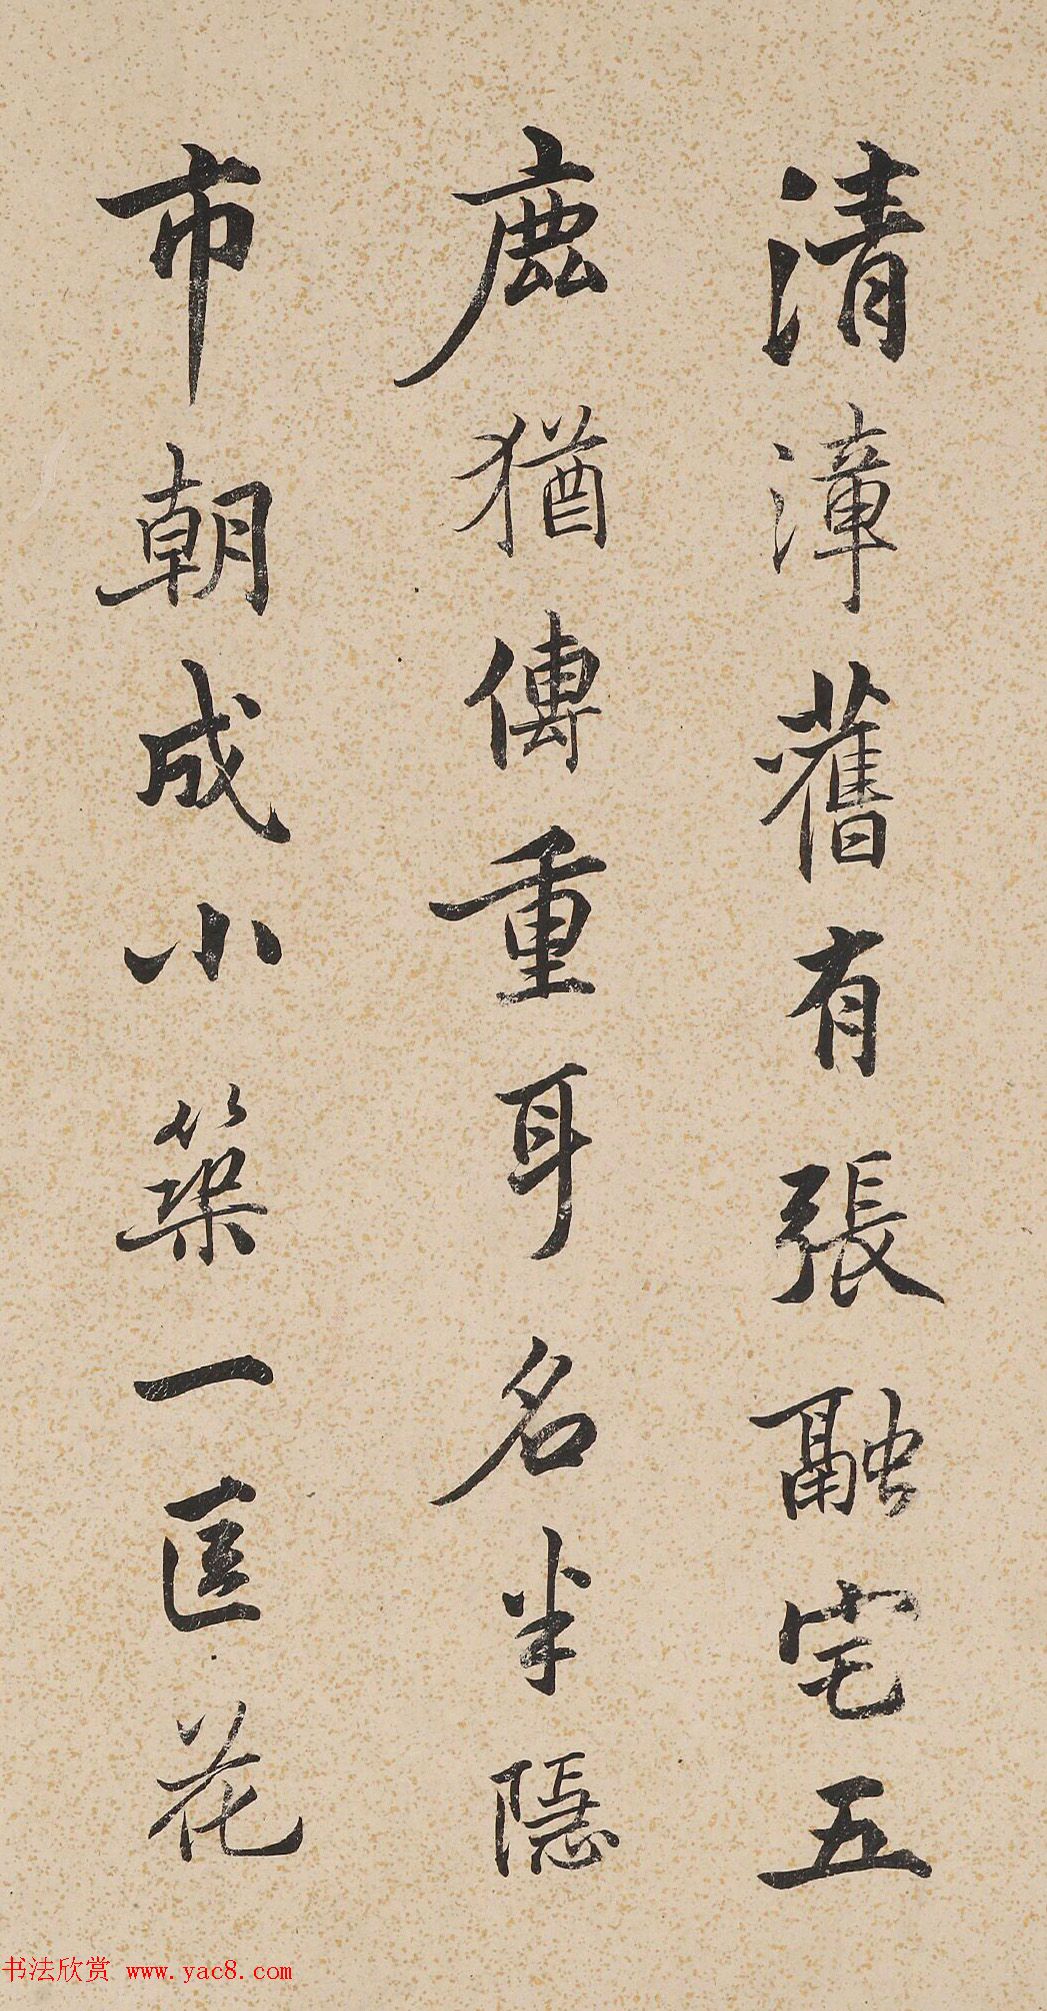 清漳舊有張融宅五
鹿猶傳重耳名半隱
市朝成小築一匡花
书法欣赏 www.yac8.com